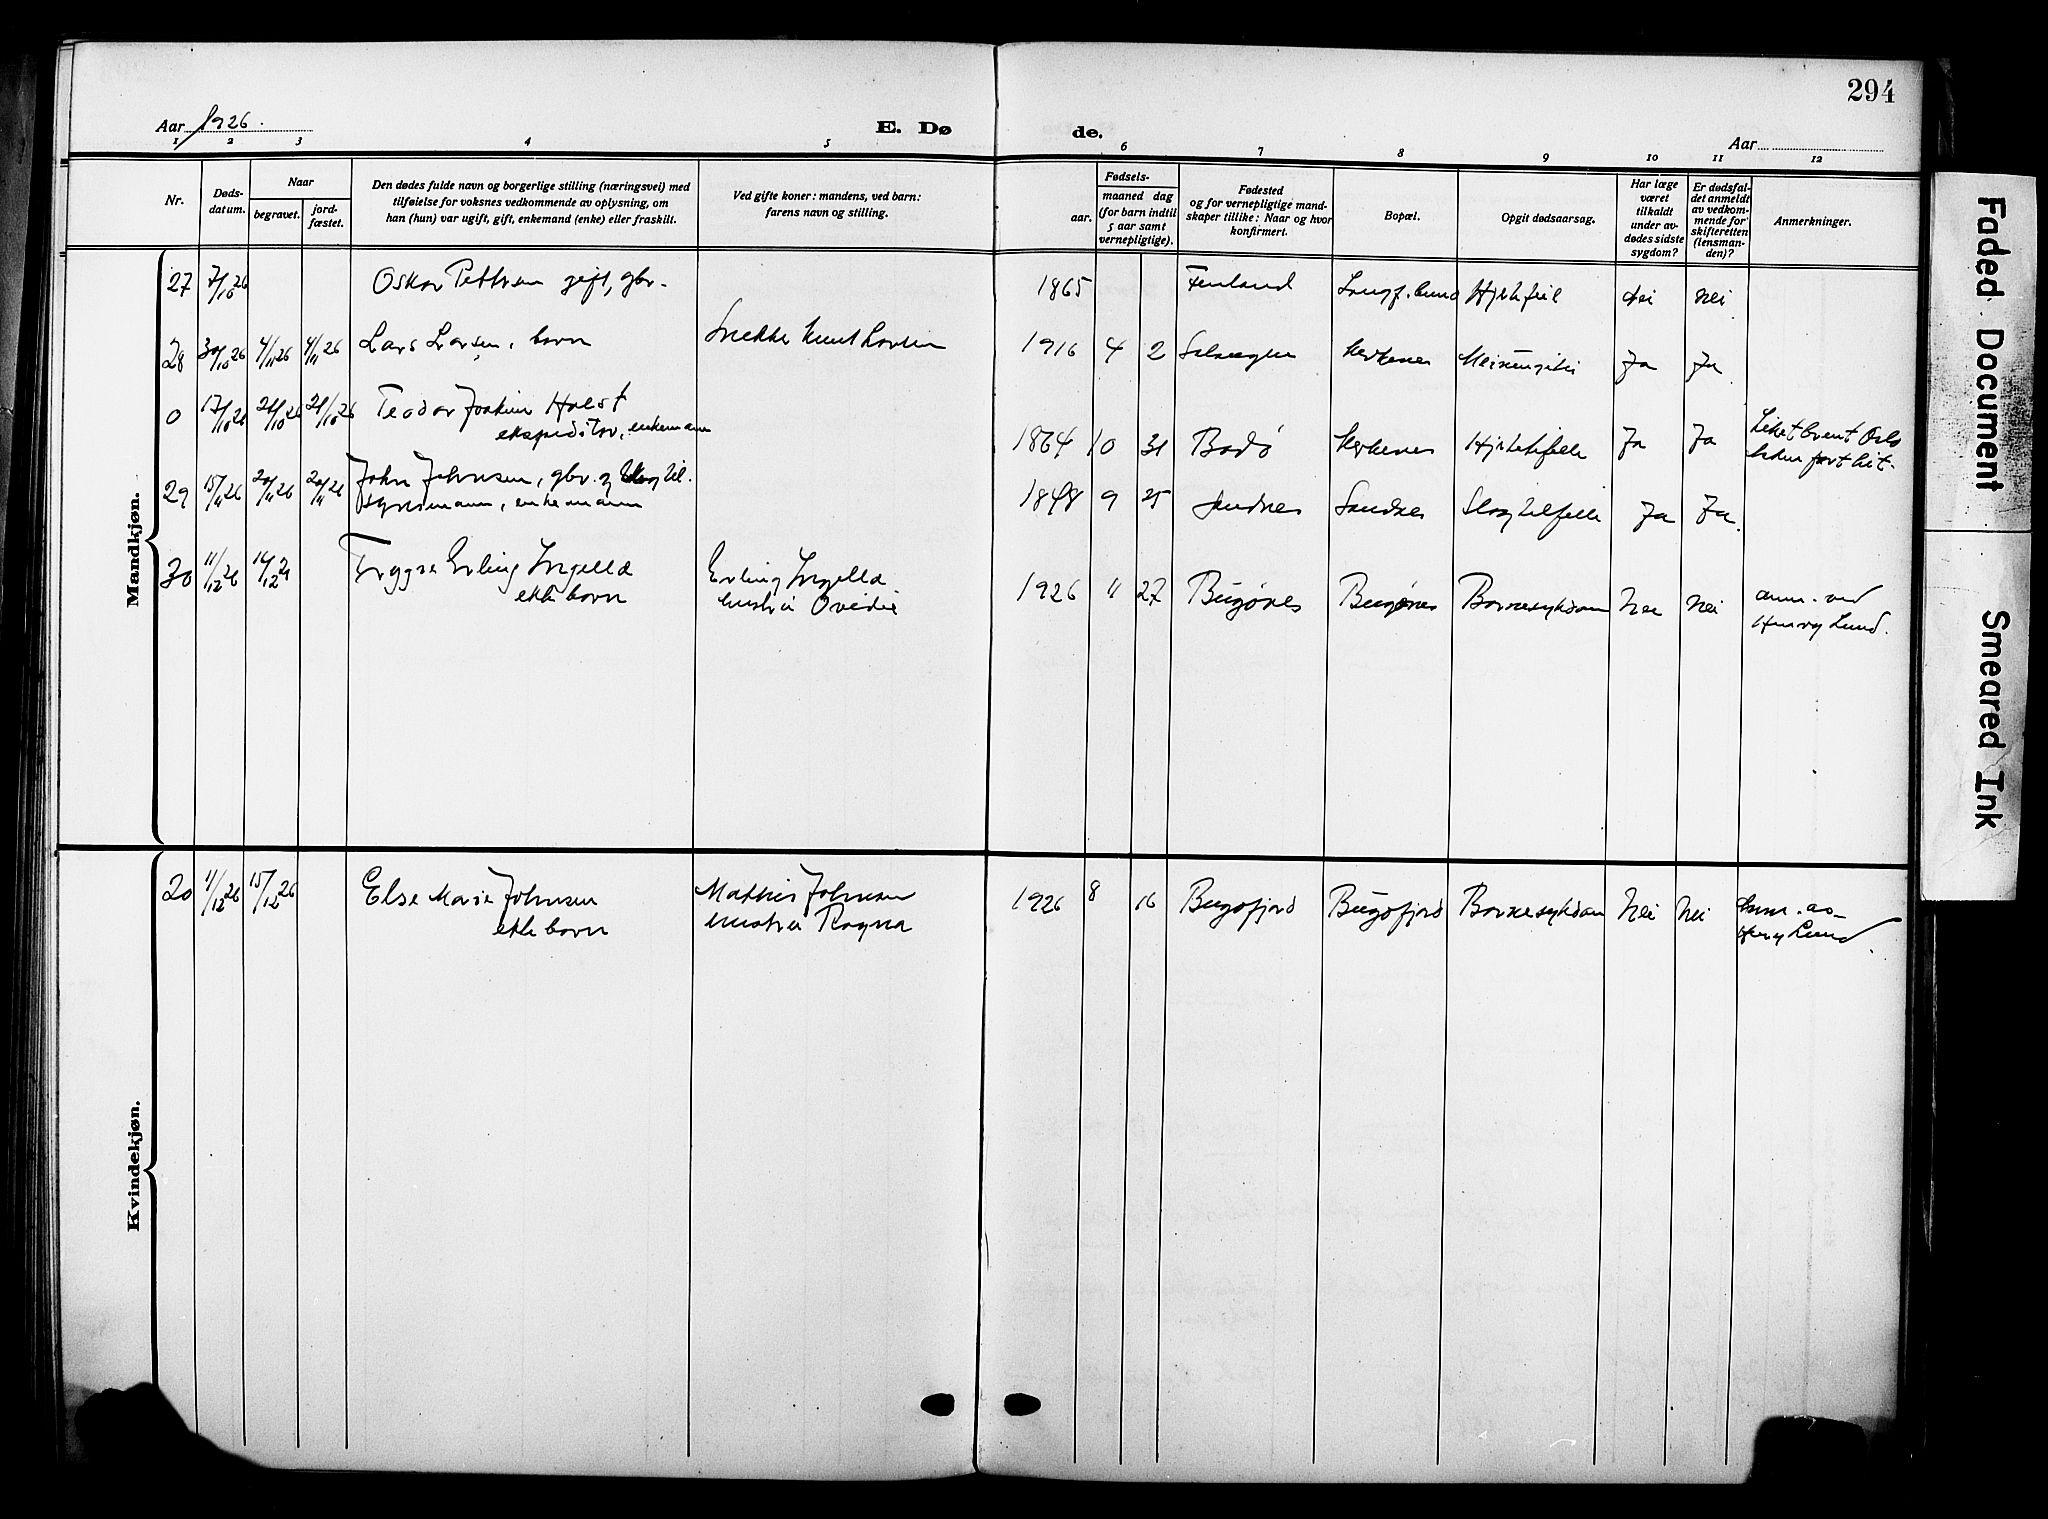 294
Aar 1926.
E. Dø
de.
Aar
1 2 3 4 5 6 7 8 9 10 11 12
Nr.
Døds-
datum.
Naar
begravet.
jord-
fæstet.
Den dødes fulde navn og borgerlige stilling (næringsvei) med
tilføielse for voksnes vedkommende av oplysning, om
han (hun) var ugift, gift, enkemand (enke) eller fraskilt.
Ved gifte koner: mandens, ved barn:
farens navn og stilling.
Fødsels-
aar.
maaned dag
(for barn indtil
5 aar samt
vernepligtige).
Fødested
og for vernepligtige mand-
skaper tillike: Naar og hvor
konfirmert.
Bopæl.
Opgit dødsaarsag.
Har læge
været
tilkaldt
under av-
dødes sidste
sygdom?
Er dødsfal-
det anmeldt
av vedkom-
mende for
skifteretten
(lensman-
den)?
Anmerkninger.
Mandkjøn.
27 7/10 26 Oskar Pettersen gift, gbr. 1865 Finland Langf.bund Hjertefeil Nei Nei
28 30/10 26 4/11 26 4/11 26 Lars Larsen, barn Snekker Knut Larsen 1916 4 2 Kirkenes Ja Ja
0 17/10 26 21/10 26 21/10 26 Teodor Joakim Holst
ekspeditør, enkemann 1864 10 31 Bodø Kirkenes Ja Ja Liket brent Oslo
29 15/11 26 20/11 26 20/11 26 John Johnsen, gbr. og
enkemann 1848 9 25 Sandnes Sandnes Slagtilfelle Ja Ja.
30 11/12 26 Trygve Erling Ingelæ
ekte barn Erling Ingelæ
hustru Ovedie 1926 11 27 Bugønes Bugønes Barnesykdom Nei Nei anm. ved
Henry Lund.
Kvindekjøn.
20 11/12 26 15/12 26 Else Marie Johnsen
ekte barn Mathis Johnsen
hustru Ragna 1926 8 16 Bugøfjord Bugøfjord Barnesykdom Nei Nei anm. av
Henry Lund.
Faded Document
Smeared Ink